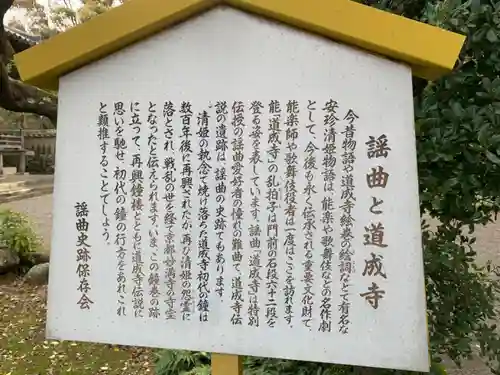 謡曲と道成寺
今昔物語や道成寺絵巻の絵詞などで有名な
安珍清姫物語は、能楽や歌舞伎などの名作劇
として、今後も永く伝承される重要文化財で、
能楽師や歌舞伎役者は一度はここを訪れます。
能「道成寺」の乱拍子は門前の石段六十二段を
登る姿を表しています。謡曲「道成寺」は特別
伝授の謡曲愛好者の憧れの難曲で、道成寺伝
説の遺跡は、謡曲の史跡でもあります。
清姫の執念で焼け落ちた道成寺初代の鐘は
数百年後に再興されたが、再び清姫の怨霊に
落とされ、戦乱の世を経て京都妙満寺の寺宝
となったと伝えられます。いま、この鐘巻の跡
に立って、打てば響く鐘楼とともに道成寺伝説に
思いを馳せ、初代の鐘の行方を、あれこれ
と類推することでしょう。
謡曲史跡保存会